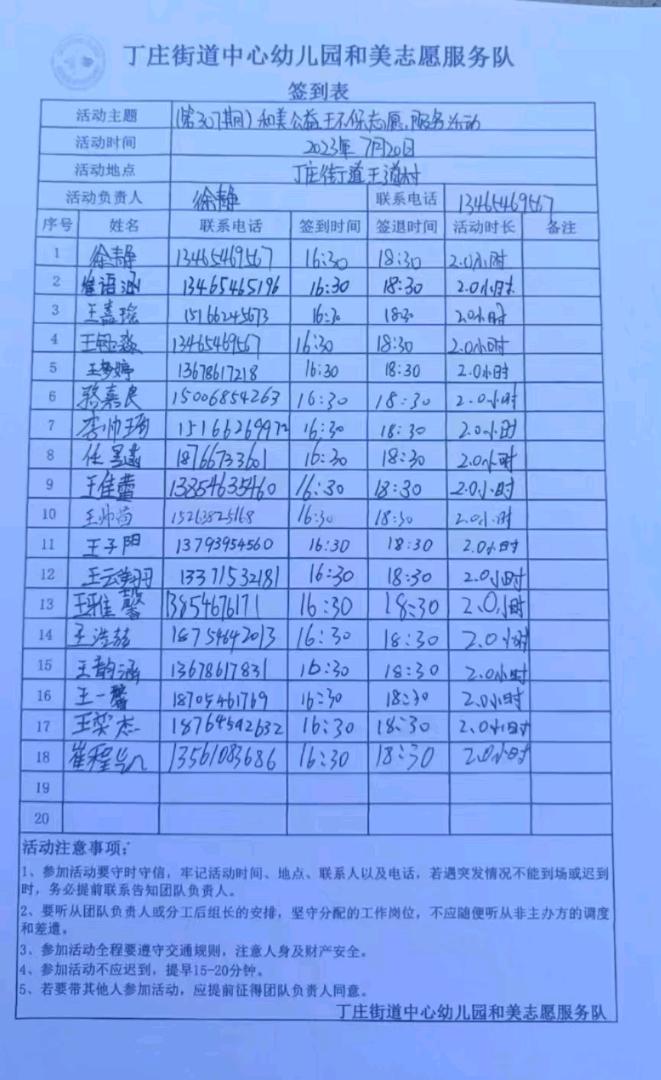 丁庄街道中心幼儿园和美志愿服务队
签到表
活动主题 (第307期)和美公益环保志愿服务活动
活动时间 2023年7月20日
活动地点 丁庄街道王道村
活动负责人 徐静 联系电话 13465469567
序号 姓名 联系电话 签到时间 签退时间 活动时长 备注
1 徐静 13465469567 16:30 18:30 2.0小时
2 崔语涵 13465465196 16:30 18:30 2.0小时
3 15166245673 16:30 18:30 2.0小时
4 13465469567 16:30 18:30 2.0小时
5 王梦婷 13678617218 16:30 18:30 2.0小时
6 骆嘉良 15006854263 16:30 18:30 2.0小时
7 16:30 18:30 2.0小时
8 18766733601 16:30 18:30 2.0小时
9 王佳蕾 13854635460 16:30 18:30 2.0小时
10 15263825168 16:30 18:30 2.0小时
11 王子阳 13793954560 16:30 18:30 2.0小时
12 王云翔 13371532181 16:30 18:30 2.0小时
13 王雅馨 16:30 18:30 2.0小时
14 王浩喆 18754642013 16:30 18:30 2.0小时
15 王韵涵 13678617831 16:30 18:30 2.0小时
16 王一馨 18705461769 16:30 18:30 2.0小时
17 王奕杰 18764592632 16:30 18:30 2.0小时
18 崔程 13561083686 16:30 18:30 2.0小时
19
20
活动注意事项:
1、参加活动要守时守信，牢记活动时间、地点、联系人以及电话，若遇突发情况不能到场或迟到
时，务必提前联系告知团队负责人。
2、要听从团队负责人或分工后组长的安排，坚守分配的工作岗位，不应随便听从非主办方的调度
和差遣。
3、参加活动全程要遵守交通规则，注意人身及财产安全。
4、参加活动不应迟到，提早15-20分钟。
5、若要带其他人参加活动，应提前征得团队负责人同意。
丁庄街道中心幼儿园和美志愿服务队